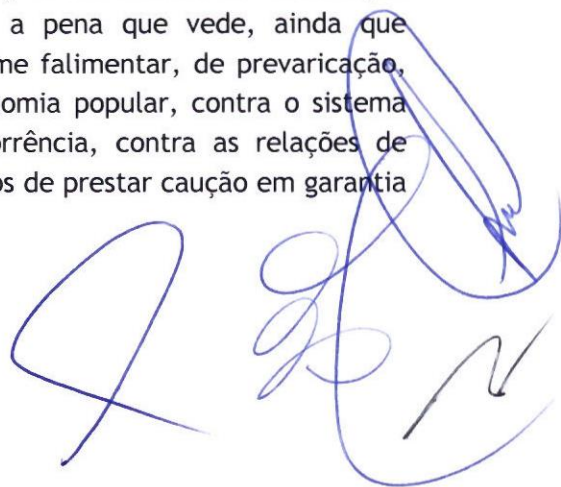 a pena que vede, ainda que
me falimentar, de prevaricação,
omia popular, contra o sistema
orrência, contra as relações de
os de prestar caução em garantia